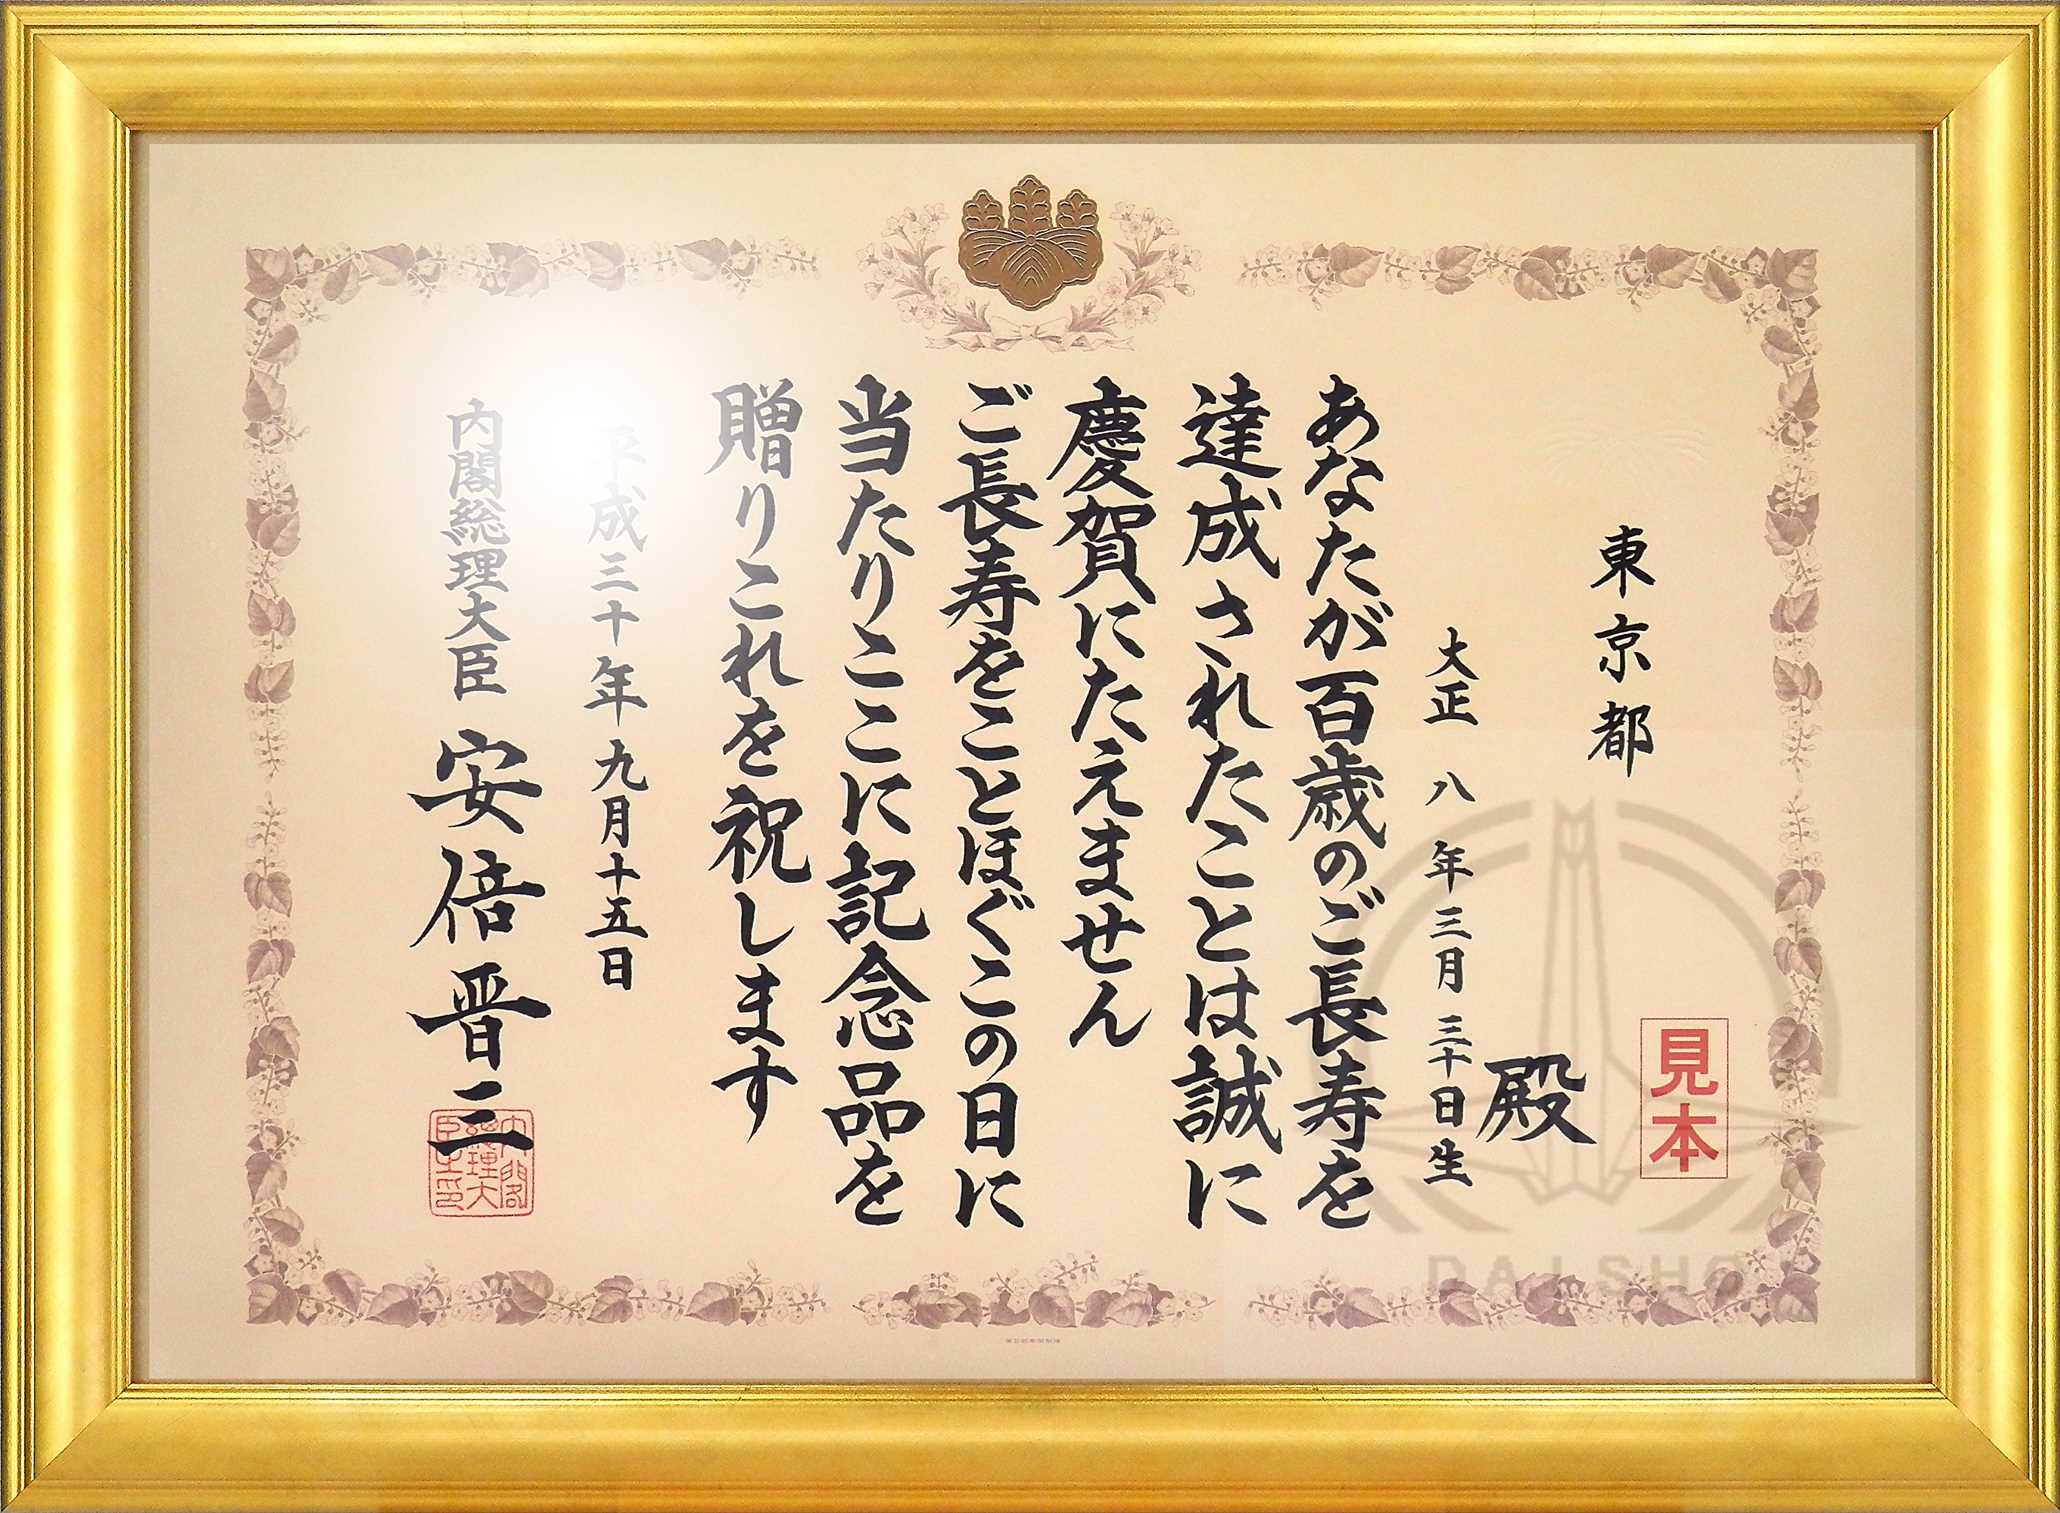 東京都
殿
大正八年三月三十日生
あなたが百歳のご長寿を
達成されたことは誠に
慶賀にたえません
ご長寿をことほぐこの日に
当たりここに記念品を
贈りこれを祝します
平成三十年九月十五日
内閣総理大臣 安倍晋三
内閣
総理大
臣之印
見本
DAISHO